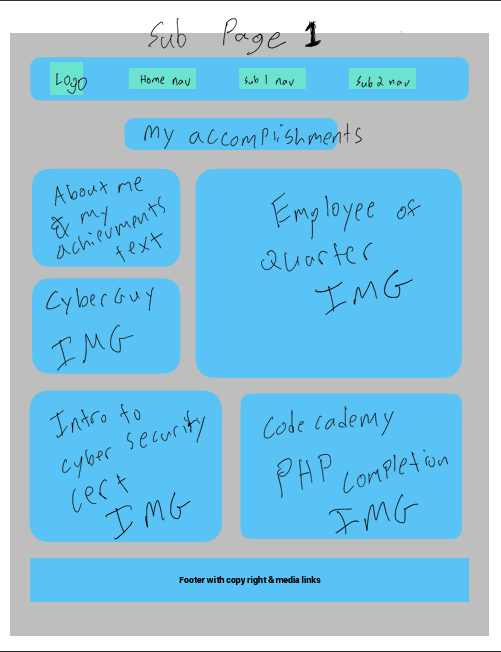 Sub Page 1
Logo
Home nav
Sub 1 nav
Sub 2 nav
My accomplishments
About me
& my
achievments
text
Employee of
Quarter
IMG
CyberGuy
IMG
Intro to
cyber security
cert
IMG
Codecademy
PHP completion
IMG
Footer with copy right & media links